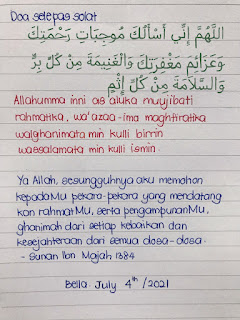 Doa selepas solat
اللَّهُمَّ إِنِّي أَسْأَلُكَ مُوجِبَاتِ رَحْمَتِكَ
وَعَزَائِمَ مَغْفِرَتِكَ وَالْغَنِيمَةَ مِنْ كُلِّ بِرٍّ
وَالسَّلَامَةَ مِنْ كُلِّ إِثْمٍ
Allahumma inni as aluka muujibati
rahmatika, wa'azaa-ima maghfiratika
walghanimata min kulli birrin
wassalamata min kulli ismin.
Ya Allah, sesungguhnya aku memohon
kepadaMu perkara-perkara yang mendatang
kan rahmatMu, serta pengampunanMu,
ghanimah dari setiap kebaikan dan
kesejahteraan dari semua dosa-dosa.
- Sunan Ibn Majah, 1384
Bella July 4th /2021